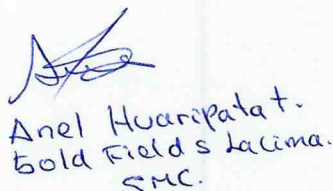 Anel Huaripatat.
Gold Fields La Cima.
SMC.